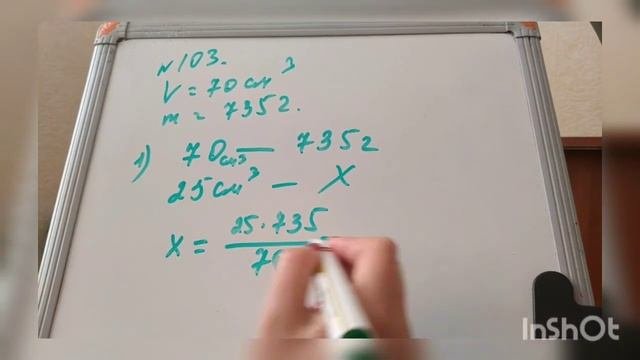 N 103.
V = 70 см³
m = 735г.
1) 70см³ — 735г
25см³ — X
X = 25·735
70
InShOt